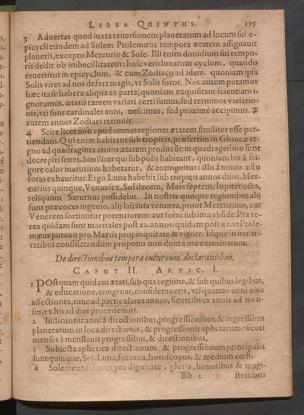 LIBER QUINTUS. 195
3 Advertas quod juxta reversionem planetarum ad locum sui e-
picycli eundem ad Solem Ptolemæus tempora ætatem assignavit
planetis, excepto Mercurio & Sole. Illi enim dimidium sui tempo-
ris dedit ob imbecillitatem: huic verò lunarem cyclum, quando
revertitur in epicyclum, & cum Zodiaco ad idem. quoniam ipsa
Solis vires ad nos defert magis, vt Solis soror. Nos autem putamus
hæc itase habere aliqua ex parte, quoniam exquisitam scientiam i-
gnoramus. ætatū tamen variati certi sumus, sed terminos variatio-
nis, vti sunt cardinales anni, nescimus, sed proximè accipimus. 7
autem annos Zodiaci retinuit.
4 Scire licet non apud omnes regiones ætatem similiter esse par-
tiendam. Qui enim habitant sub tropicis, præsertim in Guinææ re-
gno ad quadraginta annos ætatem producūt: in quadragesimo sunt
decrepiti senes. Similiter qui sub polis habitant, quoniam his à fri-
gore calor nativus hebetatur, & extinguitur: illis à nimio æstu
foras exhauritur. Ergo Luna habebit sub tropicis annos duos, Mer-
curius quinque, Venus sex, Sol decem, Mars septem, Iupiter octo,
reliquum Saturnus possidebit. In nostris quoque regionibus alij
sunt præcoces ingenio, alij lascivia venerea, prout Mercurium, aut
Venerem sortiuntur potentiorem: aut fortè subima absīde. Præte-
rea quidam sunt martiales post 22. annos: quidam post 41. vti Ptole-
mæus putavit pro Martis propinquitate & vigore. Idque in nativi-
tatibus considerandum propono non dura examinatum.
De directionibus tempora eventuum declarantibus,
CAPUT II. ARTIC. I.
1 POstquam quid cui ætati, sub qua regione, & sub quibus legibus,
& educatione, congruat, consideraveris, vti quarta anni ejus
affectiones, tunc ad particulares annos, sicuti ibi ex annis ad men-
ses, ex his ad dies procedemus.
2 Indicantur anni à directionibus, progressionibus, & ingressibus
planetarum in loca directionis, & progressionis aphetarum: sicuti
menses à menstruis progressibus, & directionibus,
3 Subjecta aphetica directionum & progressionum principalia
sunt quinque, Sol, Luna, fortuna, horoscopus, & medium cæli.
4 Solem pro dignitate, gloria, honoribus & magi-
Bb 2 stratibus